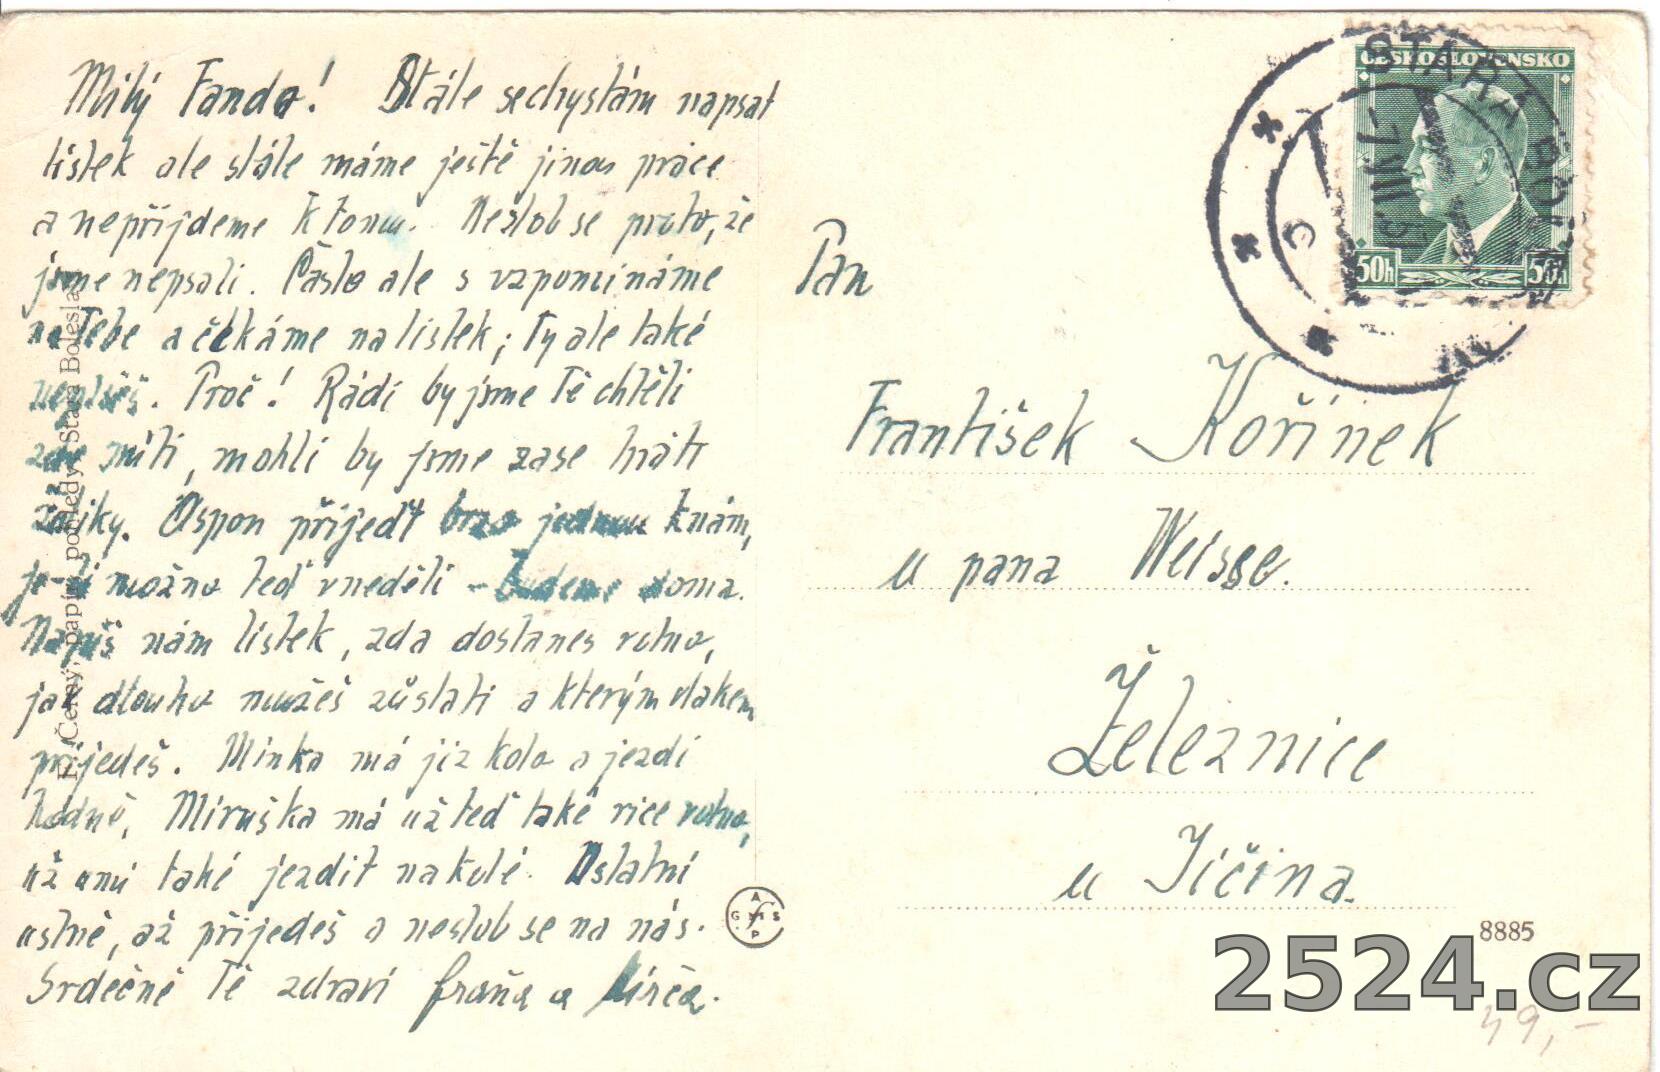 Milý Fando! Stále se chystám napsat
lístek ale stále máme ještě jinou práce
a nepřijdeme k tomu. Nezlob se proto, že
jsme nepsali. Často ale s vzpomínáme
na Tebe a čekáme na lístek; Ty ale také
nepíšeš. Proč! Rádi by jsme Tě chtěli
zde míti, mohli by jsme zase hráti
Aspon přijeďt brzo jednou k nám,
je-li možno teď v neděli – budeme doma.
Napiš nám lístek, zda dostanes volno,
jak dlouho můžeš zůstati a kterým vlakem
přijedeš. Minka má jiz kolo a jezdí
hodně, Miruška má už teď také více volno,
už umí také jezdit na kole. Ostatní
ustně, až přijedeš a nezlob se na nás.
Srdečně Tě zdraví Fraňa a
F. Černý, papír a pohledy, Stará Boleslav
GRAPS
ČESKOSLOVENSKO
50h 50h
STARÁ BOL
Pan
František Kořínek
u pana Weisse.
Železnice
u Jičína.
8885
2524.cz
49,-